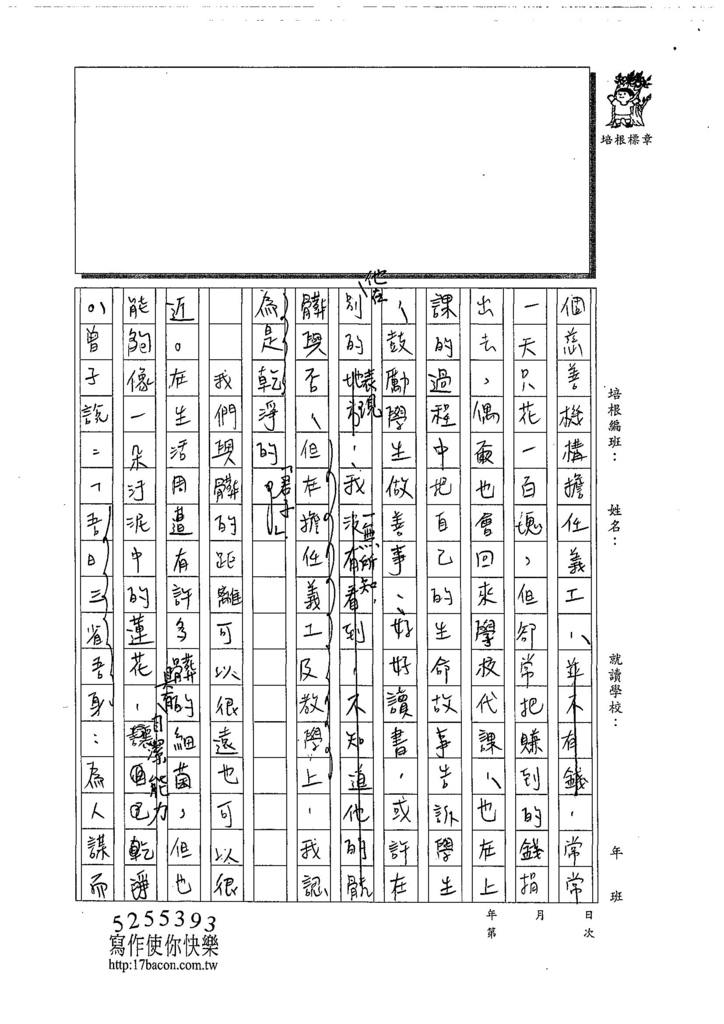 培根標章
培根編班：　姓名：　就讀學校：　年　班
個慈善機構擔任義工，並不有錢，常常
一天只花一百塊，但卻常把賺到的錢捐
出去，偶爾也會回來學校代課，也在上
課的過程中把自己的生命故事告訴學生
，鼓勵學生做善事、好好讀書，或許在
他在
別的地方，我沒有看到，不知道他的骯
表現
一無所知，
髒與否，但在擔任義工及教學上，我認
為是乾淨的
「君子」
我們與髒的距離可以很遠也可以很
近。在生活周遭有許多髒的細菌，但也
能夠像一朵汙泥中的蓮花，讓自己乾淨
具有自潔能力
。曾子說：「吾日三省吾身：為人謀而
年　月　日
第　次
5255393
寫作使你快樂
http:17bacon.com.tw